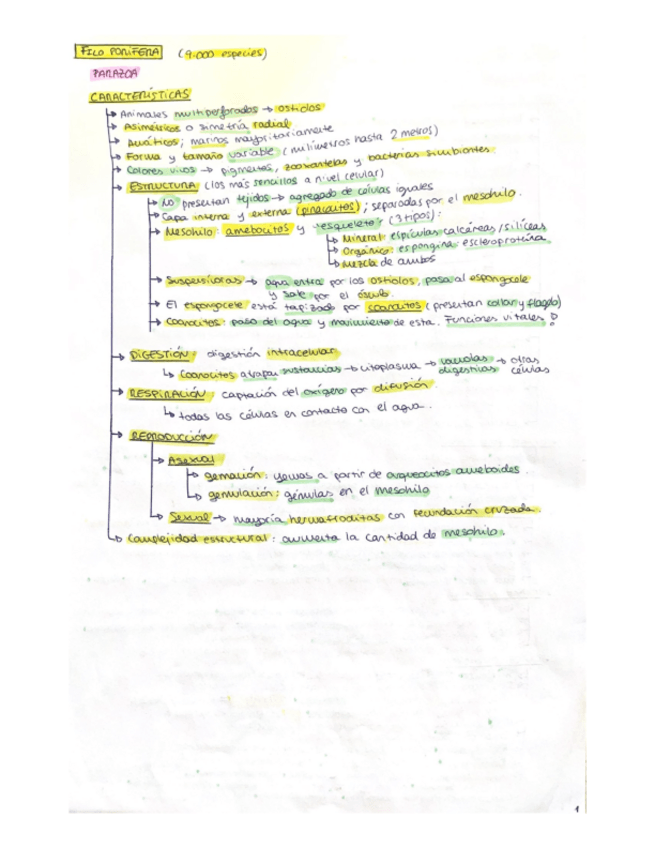 FILO PORIFERA (9.000 especies)
PARAZOA
CARACTERÍSTICAS
→ Animales multiperforados → ostiolos
→ Asimétricos o simetría radial
→ Acuáticos; marinos mayoritariamente
→ Forma y tamaño variable (milímetros hasta 2 metros)
→ Colores vivos → pigmentos, zooxantelas y bacterias simbiontes.
→ ESTRUCTURA (los más sencillos a nivel celular)
→ No presentan tejidos → agregado de células iguales
→ Capa interna y externa (pinacocitos); separadas por el mesohilo.
→ Mesohilo: amebocitos y "esqueleto" (3 tipos):
→ Mineral: espículas calcáreas/silíceas
→ Orgánico: espongina: escleroproteína
→ Mezcla de ambos
→ Suspensívoros → agua entra por los ostiolos, pasa al espongocele
y sale por el ósculo.
→ El espongocele está tapizado por coanocitos (presentan collar y flagelo)
→ Coanocitos: paso del agua y movimiento de esta. Funciones vitales
→ DIGESTIÓN: digestión intracelular
→ Coanocitos atrapan sustancias → citoplasma → vacuolas digestivas → otras células
→ RESPIRACIÓN: captación del oxígeno por difusión.
→ todas las células en contacto con el agua.
→ REPRODUCCIÓN
→ Asexual
→ gemación: yemas a partir de arqueocitos ameboides.
→ gemulación: gémulas en el mesohilo
→ Sexual → mayoría hermafroditas con fecundación cruzada.
→ Complejidad estructural: aumenta la cantidad de mesohilo.
1